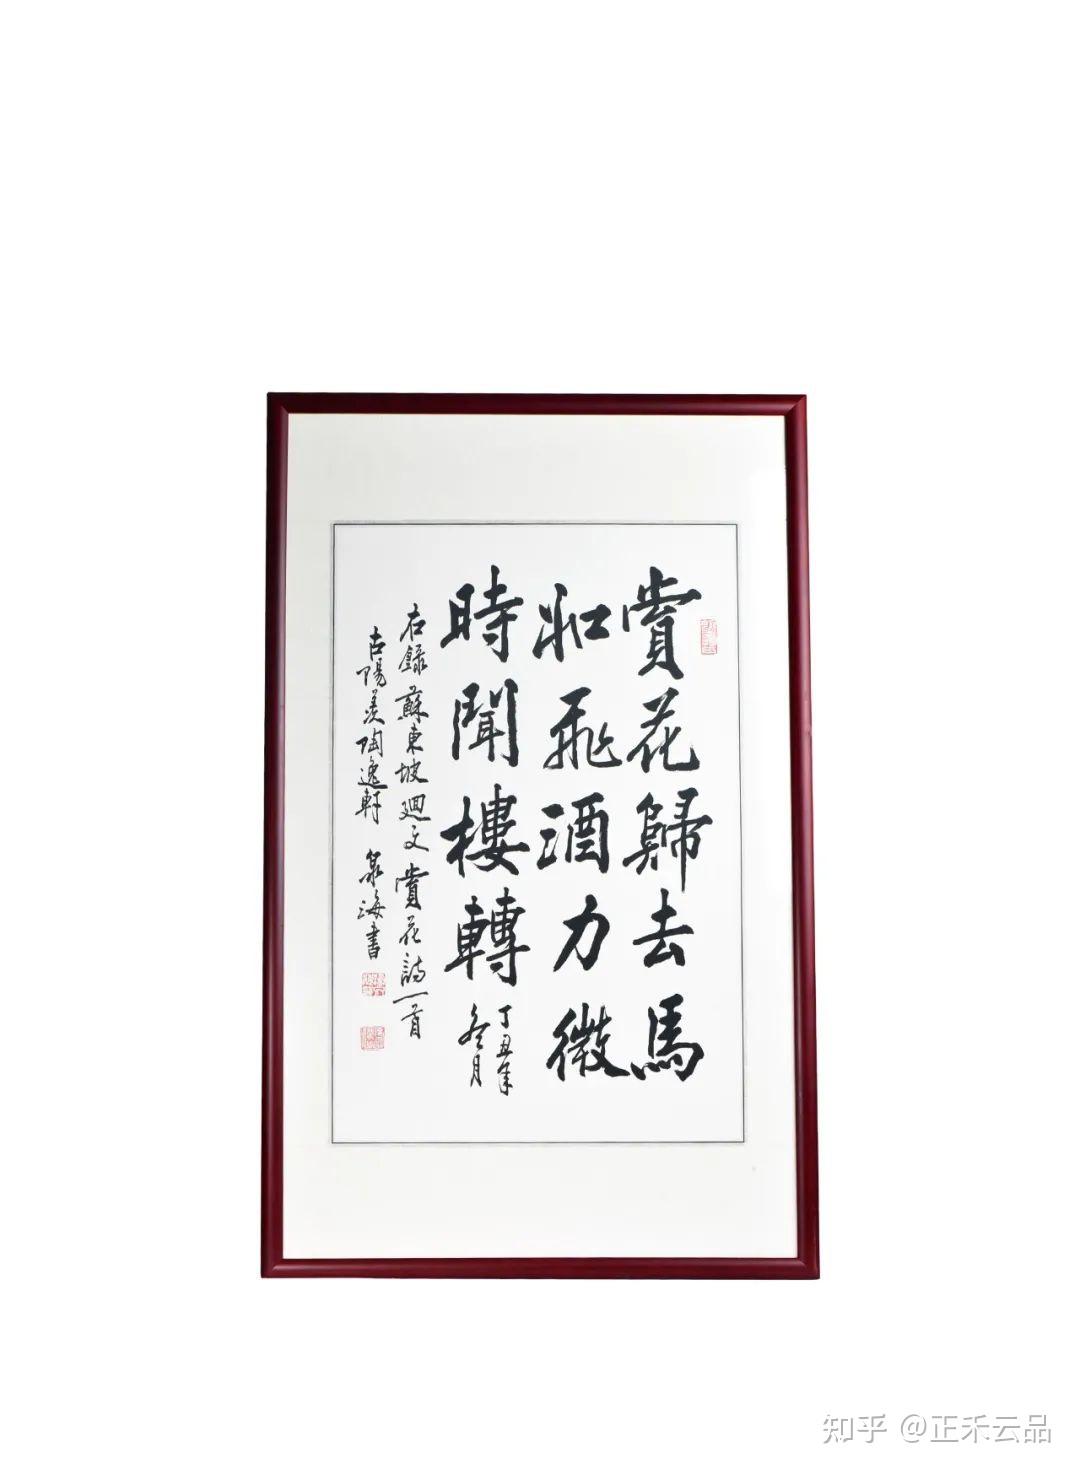 賞花歸去馬
如飛酒力微
時聞樓轉
丁丑年
冬月
右錄蘇東坡廻文賞花詩一首
古陽羨陶逸軒 泉海書
知乎 @正禾云品